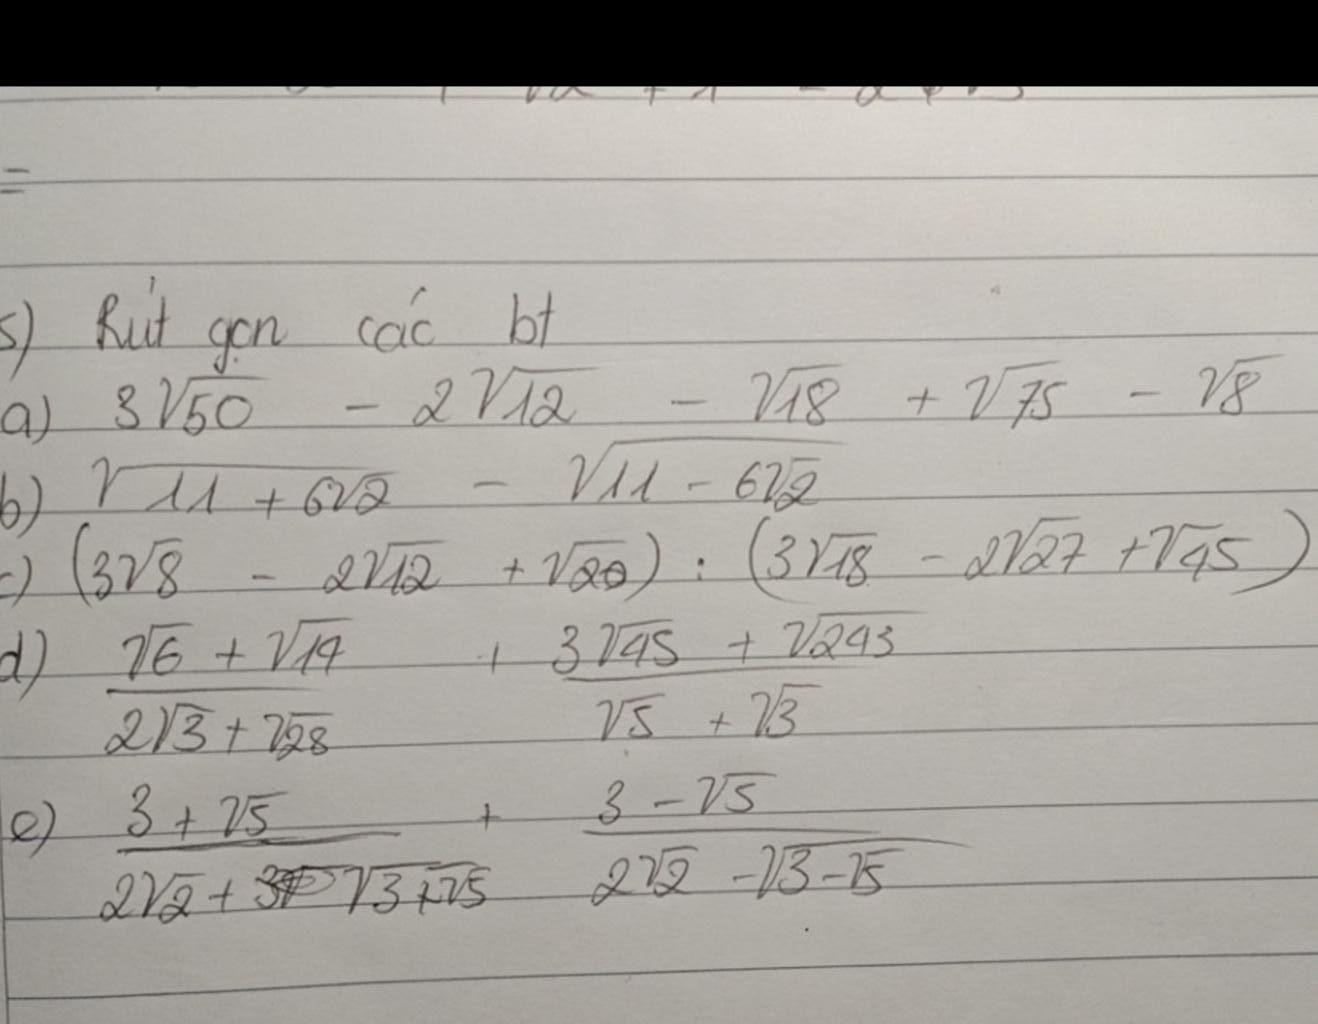 =
5) Rút gọn các bt
a) 3√50 - 2√12 - √18 + √75 - √8
b) √(11 + 6√2) - √(11 - 6√2)
c) (3√8 - 2√12 + √20) : (3√18 - 2√27 + √45)
d) (√6 + √14)/(2√3 + √28) + (3√45 + √243)/(√5 + √3)
e) (3 + √5)/(2√2 + √(3+√5)) + (3 - √5)/(2√2 - √(3-√5))